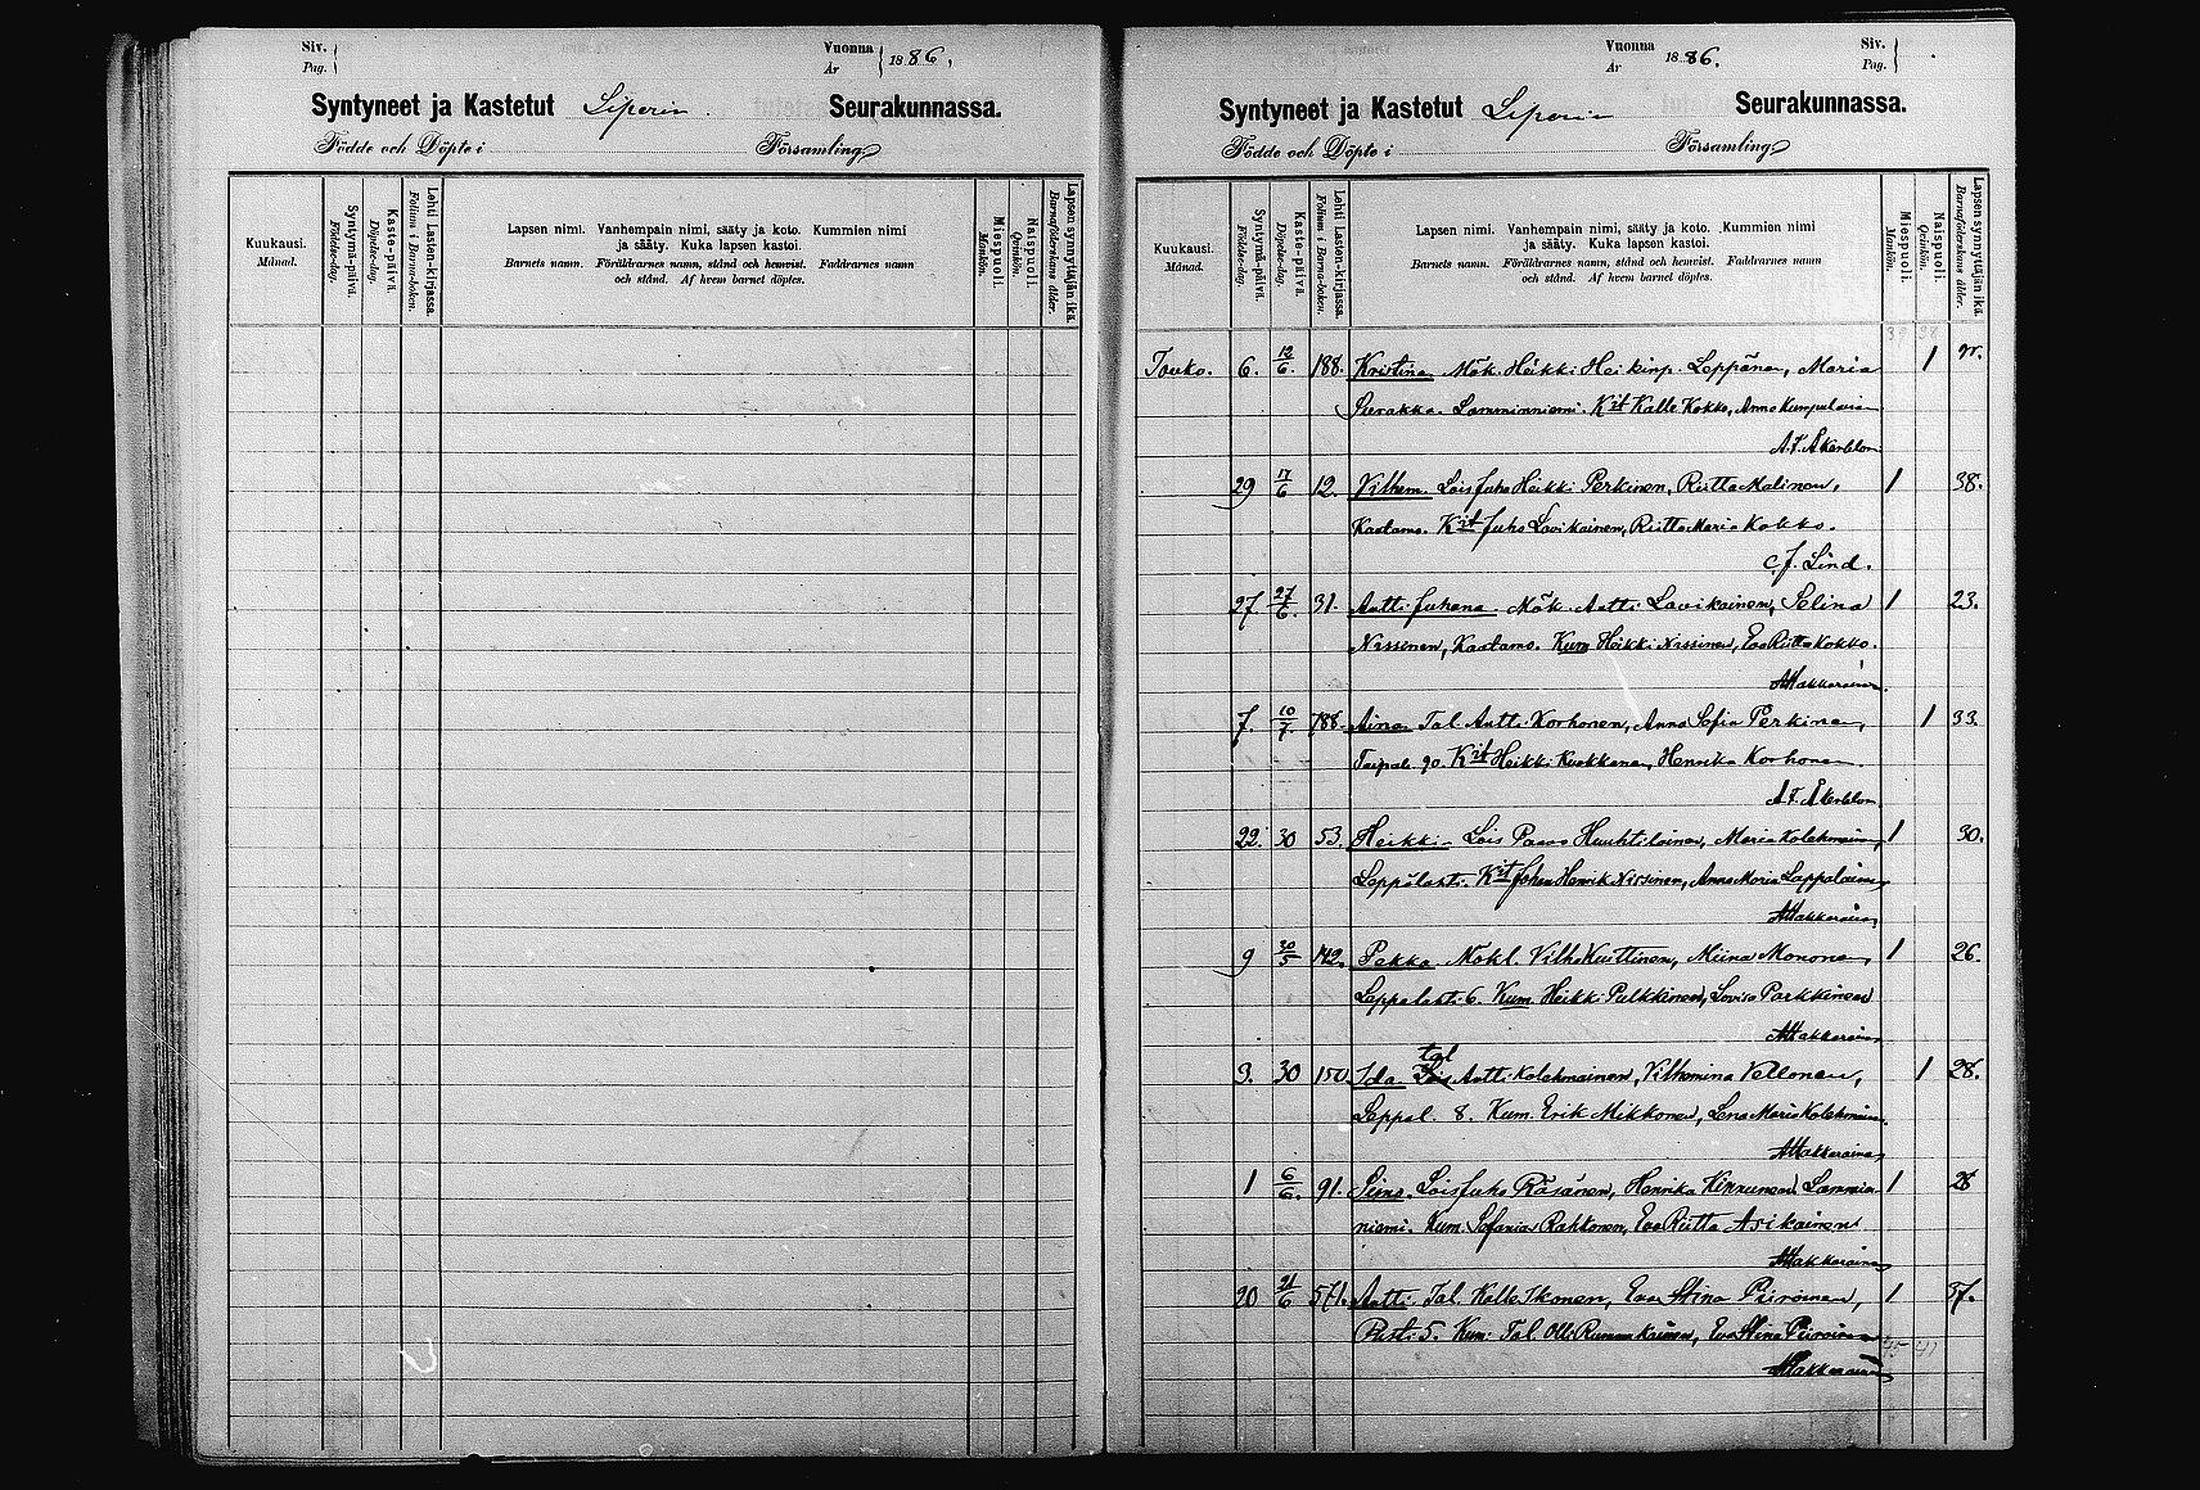 Siv.
Pag.
Vuonna
År
1886.
Syntyneet ja Kastetut Liperin Seurakunnassa.
Födde och Döpte i Församling
Kuukausi.
Månad.
Syntymä-päivä.
Födelse-dag.
Kaste-päivä.
Döpelse-dag.
Lehti Lasten-kirjassa.
Folium i Barna-boken.
Lapsen nimi. Vanhempain nimi, sääty ja koto. Kummien nimi
ja sääty. Kuka lapsen kastoi.
Barnets namn. Föräldrarnes namn, stånd och hemvist. Faddrarnes namn
och stånd. Af hvem barnet döptes.
Miespuoli.
Mankön.
Naispuoli.
Qvinkön.
Lapsen synnyttäjän ikä.
Barnaföderskans ålder.
Vuonna
År
1886.
Siv.
Pag.
Syntyneet ja Kastetut Liperin Seurakunnassa.
Födde och Döpte i Församling
Kuukausi.
Månad.
Syntymä-päivä.
Födelse-dag.
Kaste-päivä.
Döpelse-dag.
Lehti Lasten-kirjassa.
Folium i Barna-boken.
Lapsen nimi. Vanhempain nimi, sääty ja koto. Kummien nimi
ja sääty. Kuka lapsen kastoi.
Barnets namn. Föräldrarnes namn, stånd och hemvist. Faddrarnes namn
och stånd. Af hvem barnet döptes.
Miespuoli.
Mankön.
Naispuoli.
Qvinkön.
Lapsen synnyttäjän ikä.
Barnaföderskans ålder.
Touko. 6. 12/6. 188. Kristina Mök. Heikki Heikinp. Leppänen, Maria 1
Lamminniemi. Kit Kalle Kokko, Anna Kumpulain
A.F. Åkerblom
29 17/6 12. Vilhem. Lois Juho Heikki Perkinen, Riitta Malinen, 1 38.
Kaatamo. Kit Juho Lavikainen, Riitta Maria Kokko.
C.J. Lind.
27. 27/6. 31. Antti Juhana. Mök. Antti Lavikainen, Selina 1 23.
Nissinen, Kaatamo. Kum Heikki Nissinen, Eva Riitta Kokko.
AMakkarainen.
7. 10/7. 788. Aina Tal. Antti Korhonen, Anna Sofia Perkinen, 1 33.
Taipal. 90. Kit Heikki Kuokkanen, Henrika Korhonen.
A.F. Åkerblom
22. 30 53. Heikki Lois Paavo Huuhtilainen, Maria Kolehmainen, 1 30.
Leppälahti. Kit Johan Henrik Nissinen, Anna Maria Lappalainen
AMakkarainen
9 30/5 142. Pekka Mökl. Vilho Kuittinen, Miina Mononen, 1 26.
Leppalahti 6. Kum. Heikki Pulkkinen, Lovisa Parkkinen
AMakkarainen
3. 30 150. Ida tal Lois Antti Kolehmainen, Vilhemina Vellonen, 1 28.
Leppal. 8. Kum. Erik Mikkonen, Lena Maria Kolehmainen.
AMakkarainen
1 6/6. 91. Simo. Lois Juho Räsänen, Henrika Kinnunen, Lammin 1 28
niemi. Kum. Sefanias Rahkonen, Eva Riitta Asikainen
AMakkarainen
20 21/6 571. Antti. Tal. Kalle Ikonen, Eva Stina Piiroinen, 1
5. Kum. Tal. Olli Eva Stina Piiroinen
AMakkarainen